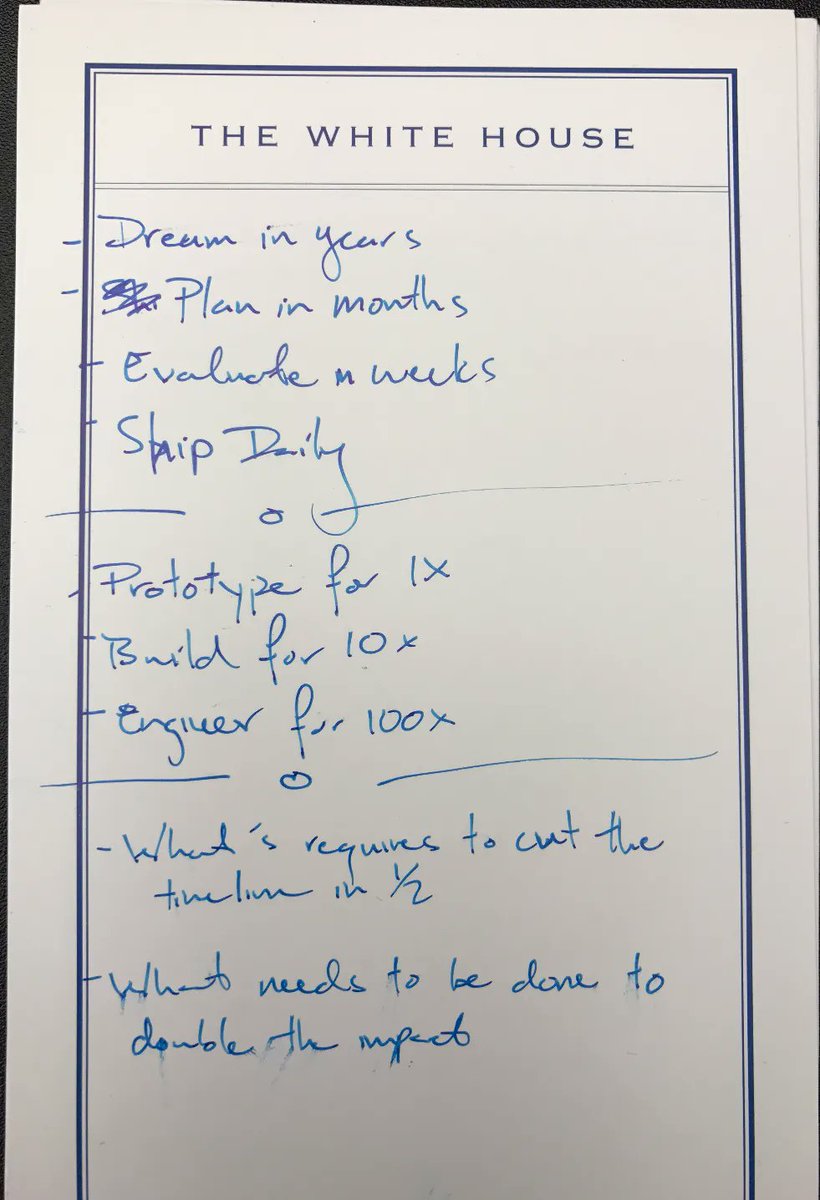 THE WHITE HOUSE
- Dream in years
- Plan in months
- Evaluate in weeks
- Ship Daily
- Prototype for 1X
- Build for 10x
- Engineer for 100x
- What's requires to cut the
timeline in 1/2
- What needs to be done to
double the impact